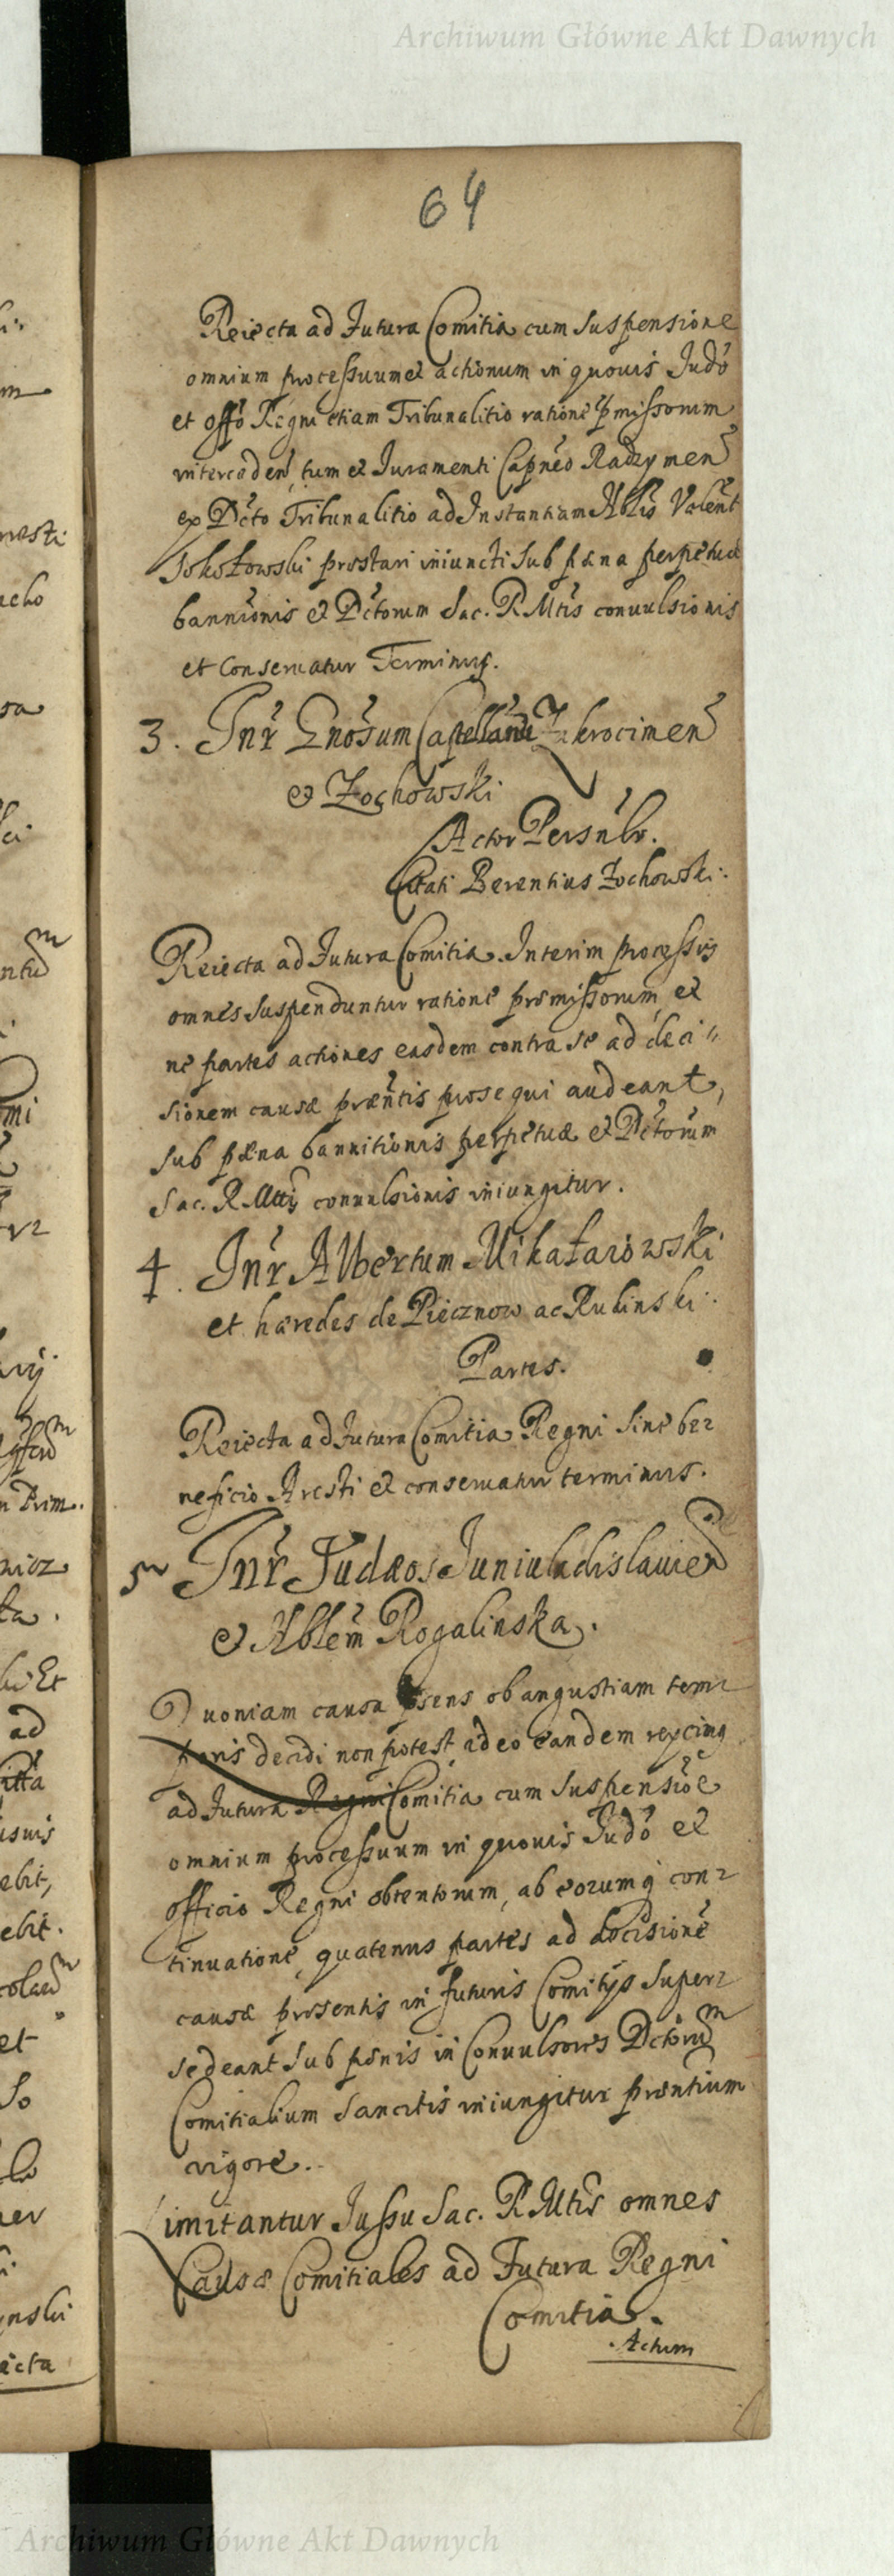 Archiwum Główne Akt Dawnych
64
Reiecta ad Futura Comitia cum suspensione
omnium processuum et actionum in quouis Judo
et offo Regni etiam Tribunalitio ratione pmissorum
interceden, tum et Juramenti Capneo Radzymen
ex Dcto Tribunalitio ad Instantiam Nblis Valent
Sokołowski præstari iniuncti sub pæna perpetuæ
bannionis et Dctorum Sac. R Mtis conuulsionis
et Conseruatur Terminus.
3. Inr Gnosum Castellanu Zakrocimen
et Zochowski
Actor Persnlr.
Citati Berentius Zochowski.
Reiecta ad Futura Comitia. Interim processus
omnes suspenduntur ratione præmissorum, et
ne partes actiones easdem contra se ad deci"
sionem causæ præntis prosequi audeant,
sub pæna bannitionis perpetuæ et Dctorum
Sac. R Mttis conuulsionis iniungitur.
4. Inr Albertum Mikałaiowski
et hæredes de Piecznow ac Rulinski.
Partes.
Reiecta ad Futura Comitia Regni sine be=
neficio Aresti et conseruatur terminus.
5 Inr Judæos Juniuladislauien
et Nblem Rogalinska.
Quoniam causa psens ob angustiam tem=
poris decidi non potest, adeo eandem reycimg
ad Futura Regni Comitia cum suspensioe
omnium processuum in quouis Judo et
officio Regni obtentorum, ab eorumq con=
tinuatione, quatenus partes ad decisione
causæ præsentis in futuris Comitijs super=
sedeant sub pænis in Conuulsores Dctorum
Comitialium sancitis iniungitur præntium
vigore.
Limitantur Jussu Sac. R Mtis omnes
Causæ Comitiales ad Futura Regni
Comitia.
Actum
Archiwum Główne Akt Dawnych